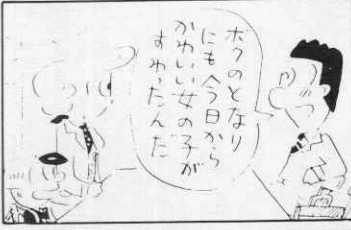 ボクのとなり
にも今日から
かわいい女の子が
すわったんだ